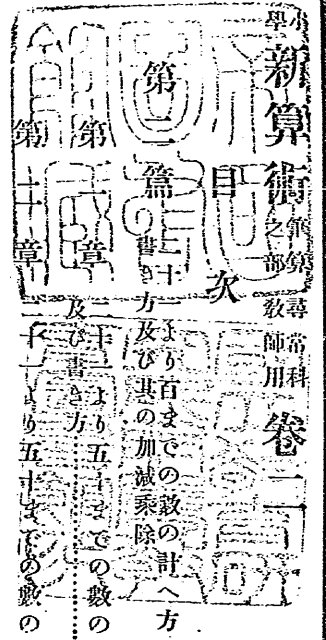 小學新算術 筆算之部 尋常科敎師用 卷二
目次
第二篇 二十一より百までの數の計へ方
書き方及び其の加減乘除
第一章 二十一より五十までの數の
及び書き方………
第二章 二十一より五十までの數の